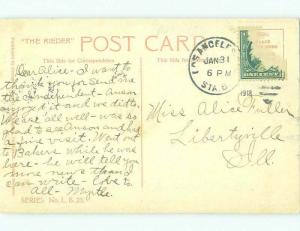 "THE RIEDER"
POST CARD
This Side for Correspondence.
This side is for the Address.
LOS ANGELES
JAN 31
6 PM
STA.
1918
ONE CENT
Dear Alice - I want to
thank you for send me
the Independent - Anson
and we
are all well - was so
glad to see Anson and
a nice visit. Went out
to while he was
here - he will tell you
more news than I
can write - love to
all - Myrtle.
Miss Alice
Libertyville
Ill.
SERIES No. L. B. 25.